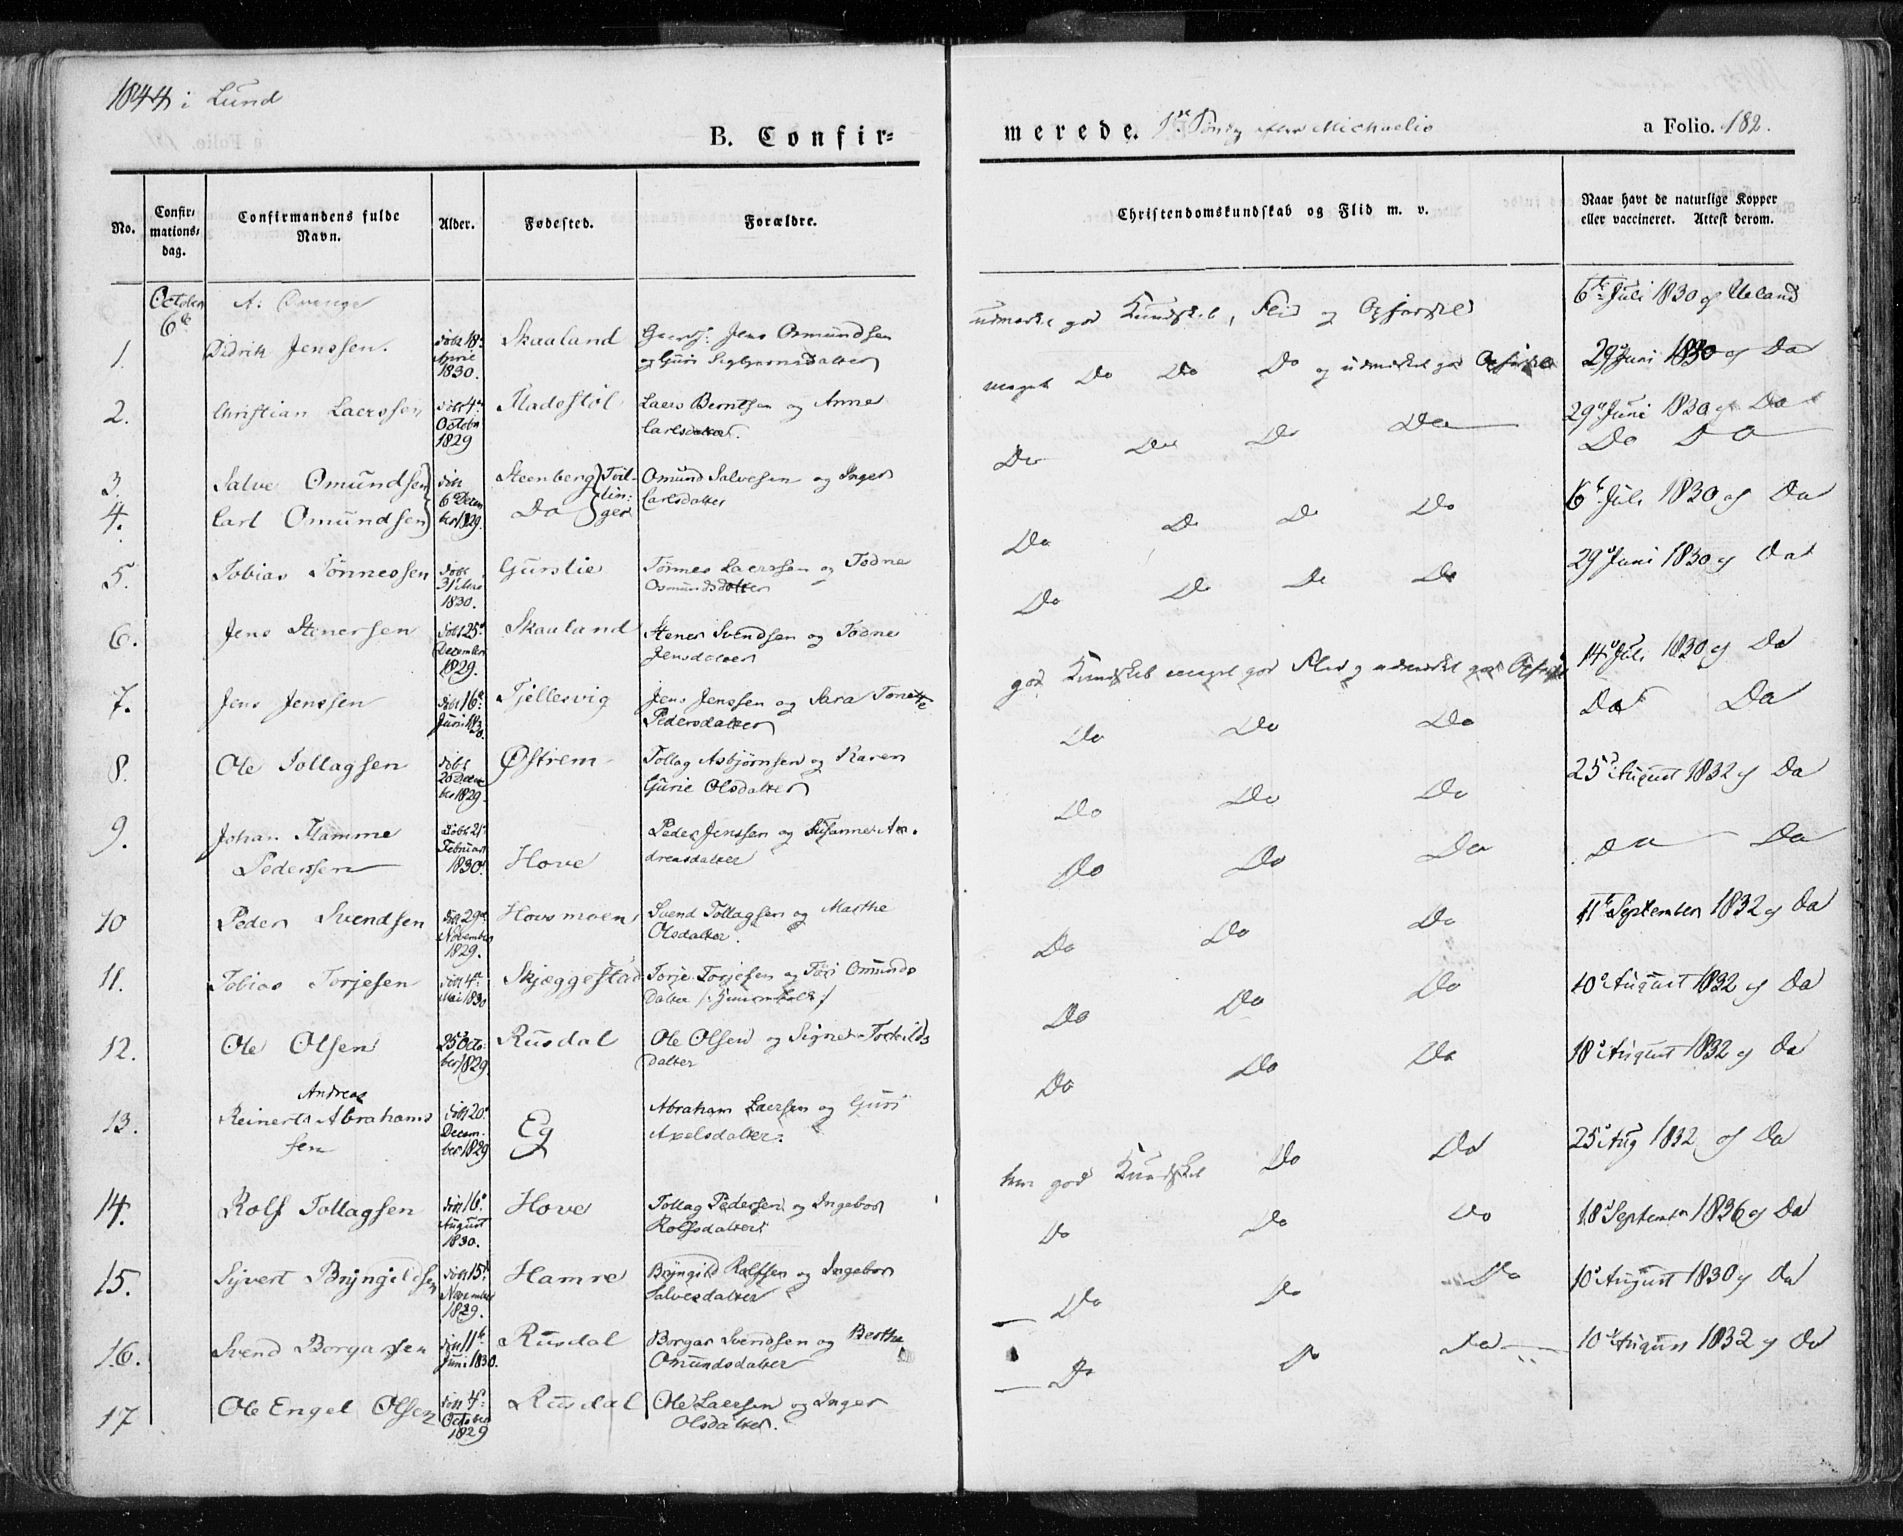 1844 i Lund
B. Confir=
merede. 1ste Søndg efter Michaelis
a Folio. 182.
No.
Confir=
mations=
dag.
Confirmandens fulde
Navn.
Alder.
Fødested.
Forældre.
Christendomskundskab og Flid m. v.
Naar havt de naturlige Kopper
eller vaccineret. Attest derom.
October
6te
A. Drenge
1. Didrik Jenssen. født 18de April 1830. Skaaland Jens Osmundsen
og Guri
udmærket god Kundskab, Flid og Opførsel
6te Juli 1830 af Ueland
2. Christian Laerssen født 4de October 1829 Madostøl Laers Berntsen og Anne
Carlsdatter.
meget Do Do Do og udmærket god Opførsel
29de Juni 1830 af Do
3. Salve Omundsen født 6 December 1829. Steenberg Tvil-
lin-
ger
Omund Salvesen og Inger
Carlsdatter
Do Do Do Do
29de Juni 1830 af Do
4. Carl Omundsen Do
Do Do
5. Tobias Tønnessen født 31 1830. Gurslie Tønnes Laerssen og Todne
Osmundsdatter
Do Do Do Do
6te Juli 1830 af Do
6. Jens Stenersen født 25de December 1829. Skaaland Stener Svendsen og Todne
Jensdatter
Do Do Do Do
29de Juni 1830 af Do
7. Jens Jenssen født 16de Juni 1830. Fjellesvig Jens Jenssen og Sara Tonette
Pedersdatter
god Kundskab meget god Flid og udmærket god Opførsel
14de Juli 1830 af Do
8. Ole Tollagsen født 26 December 1829. Østrem Tollag Asbjørnsen og Karen
Gurie Olsdatter
Do Do Do
Do Do
9. Johan Flamme
Pederssen født 21de Februar 1830. Hove Peder Jenssen og Susanne An-
dreasdatter
Do Do Do
25de August 1832 af Do
10 Peder Svendsen født 29de November 1829. Hovsmoen Svend Tollagsen og Marthe
Olsdatter.
Do Do Do
Do Do
11. Tobias Torjesen født 4de Mai 1830 Skjæggestad Torje Torjesen og Omunds
datter
Do Do Do
11te September 1832 af Do
12. Ole Olsen 25 October 1829 Rusdal Ole Olsen og Signe Torkilds
datter
Do Do Do
10de August 1832 af Do
13. Andreas
Reinert Abrahams
sen født 20de December 1829 Eg Abraham Laersen og Guri
Axelsdatter.
Do Do Do
18de August 1832 af Do
14. Rolf Tollagsen født 16de August 1830. Hove Tollag Pedersen og Ingebor
Rolfsdatter
god Kundskab Do Do
25de Aug 1832 af Do
15. Sivert Bryngildsen født 15de November 1829. Hamre Bryngild Rolfsen og Ingebor
Salvesdatter
Do Do Do
18de September 1836 af Do
16. Svend Borgarsen født 11te Juni 1830. Rusdal Borgar Svendsen og Bertha
Omundsdatter
Do Do Do
10de August 1830 af Do
17 Ole Engel Olsen født 4de October 1829 Rusdal Ole Laersen og Inger
Olsdatter.
Do Do Do
10de August 1832 af Do